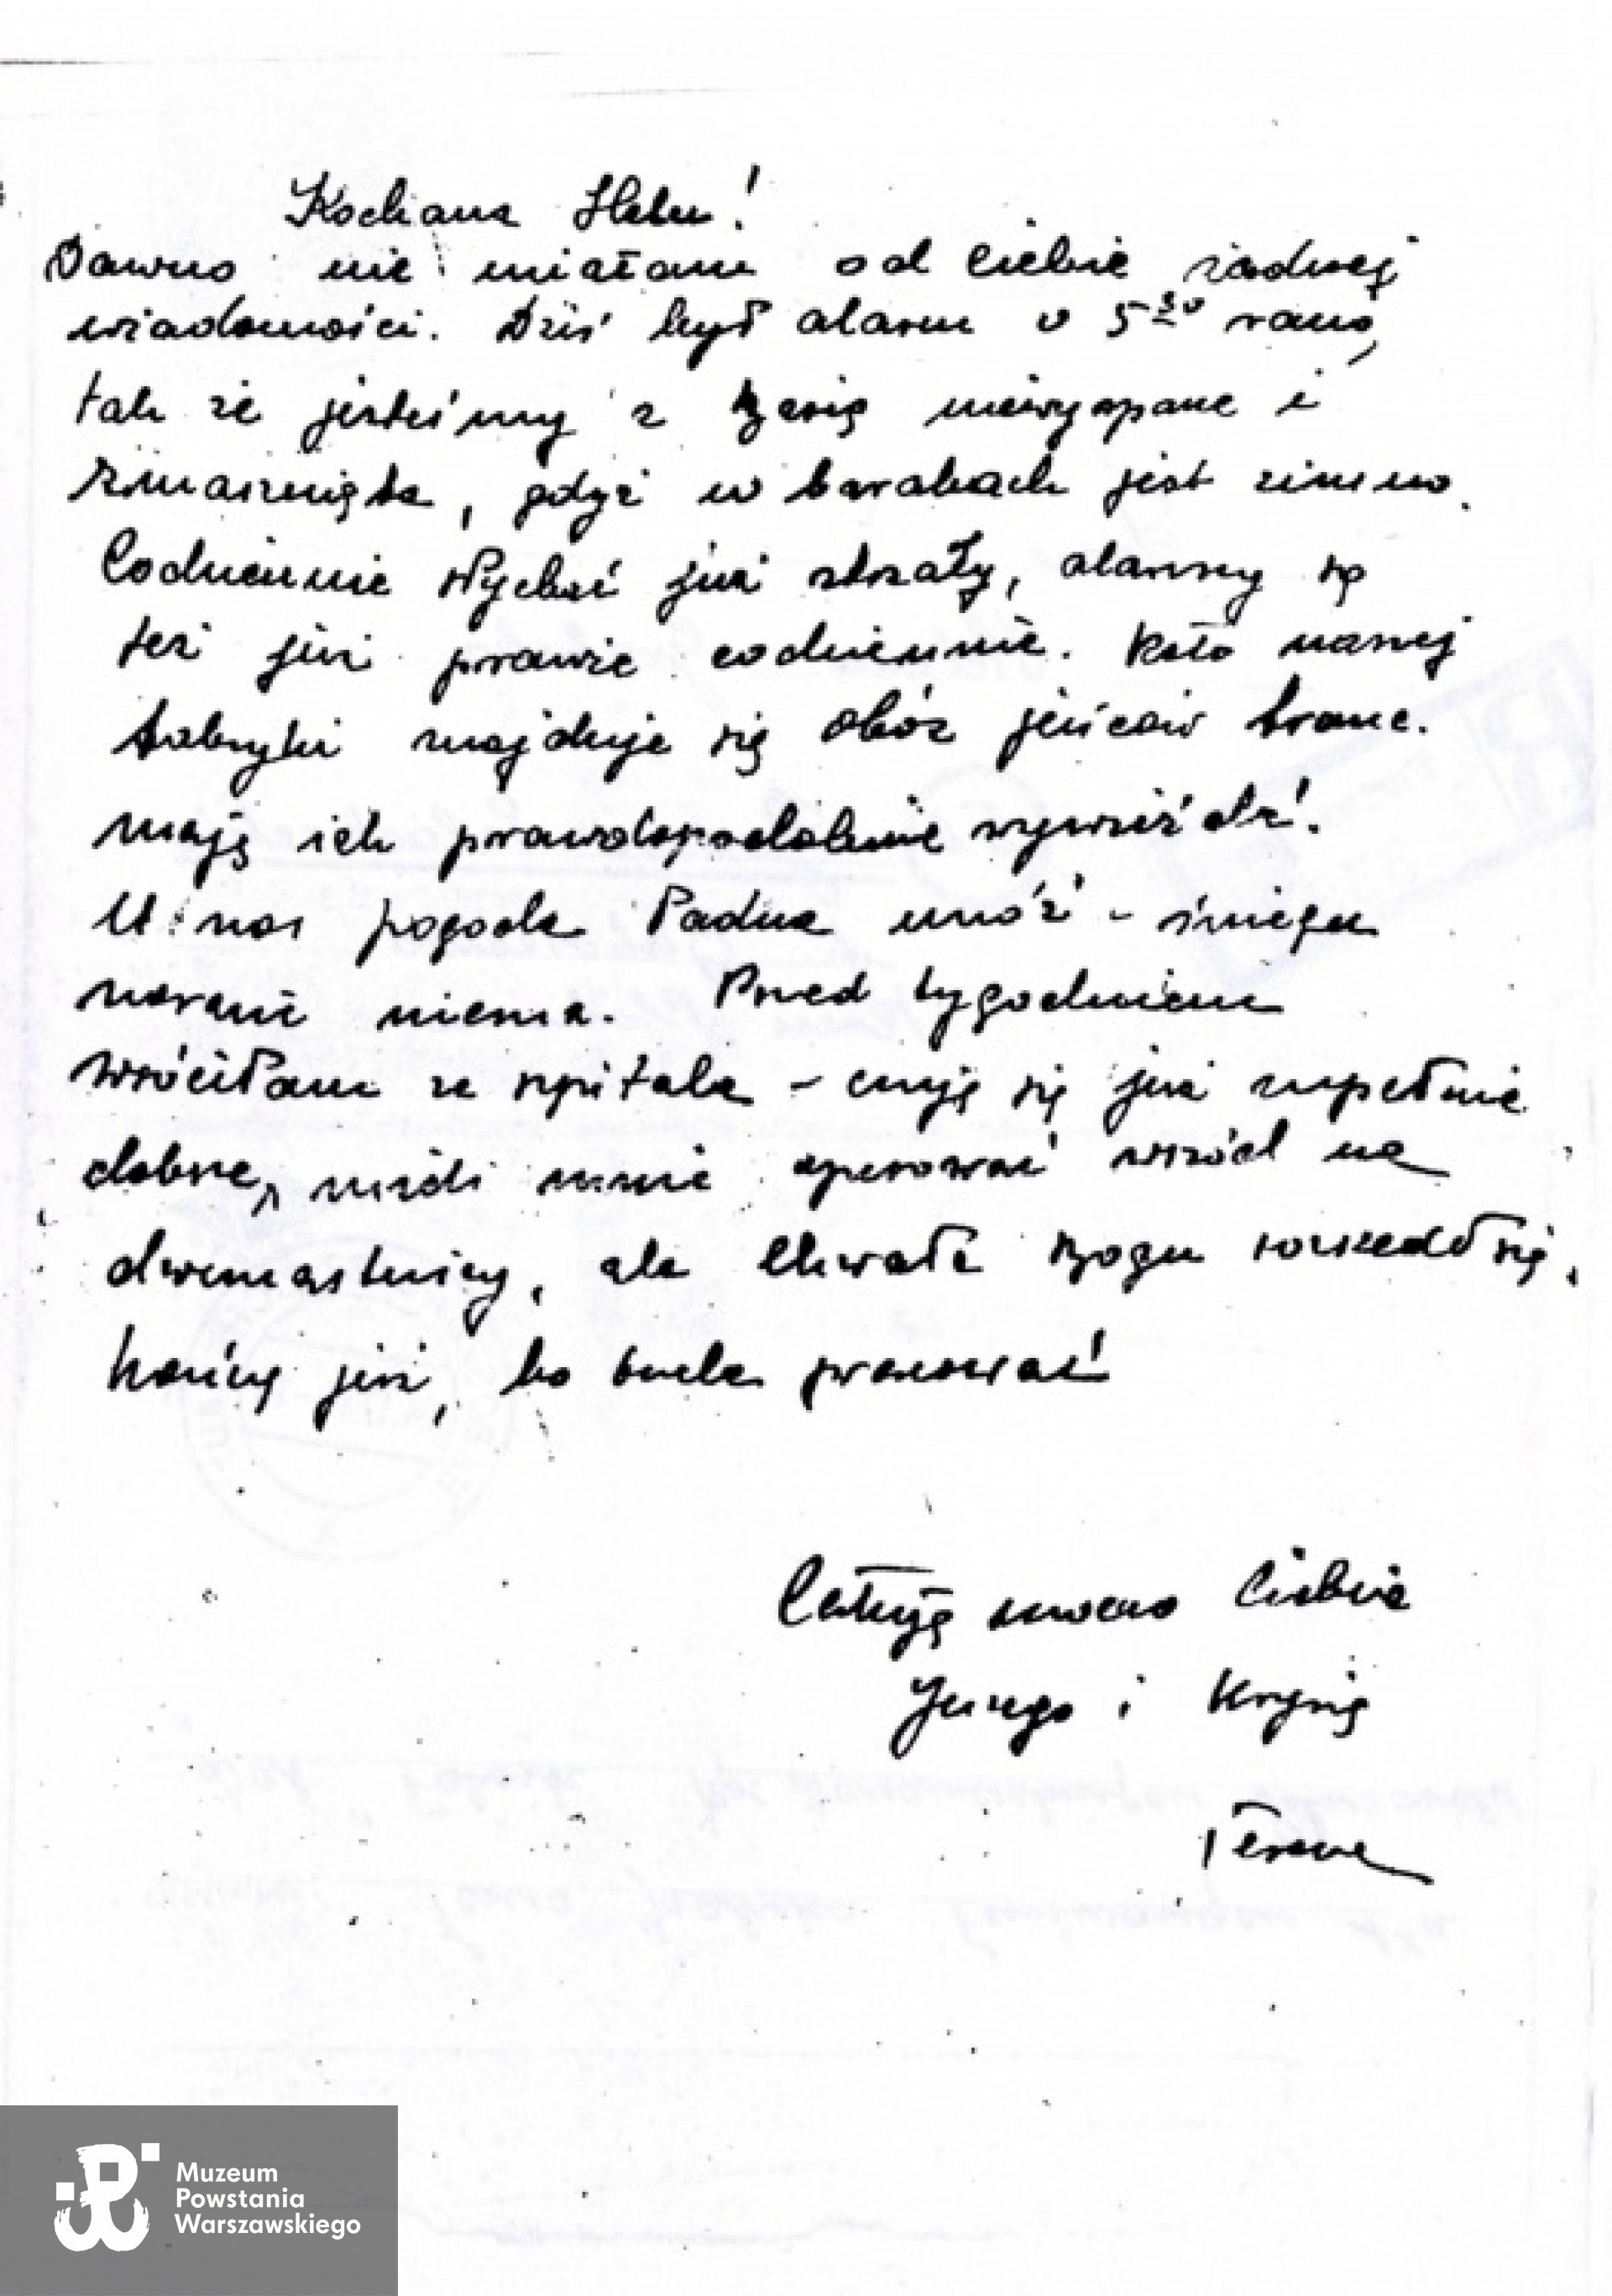 Kochana Helu!
Dawno nie miałam od Ciebie żadnej
wiadomości. Dziś był alarm o 5³⁰ rano,
tak że jesteśmy z niewyspane i
zmarznięte, gdyż w barakach jest zimno.
Codziennie słychać już strzały, alarmy są
też już prawie codziennie. Koło naszej
fabryki znajduje się obóz jeńców franc.
mają ich prawdopodobnie wywieźć.
U nas pogoda ładna mróz - śniegu
narazie niema. Przed tygodniem
wróciłam ze szpitala - czuję się już zupełnie
dobrze, mieli mnie operować wrzód na
dwunastnicy, ale Chwała Bogu rozszedł się.
Kończę już, bo trzeba pracować
Całuję mocno Ciebie
Jurego i Krysię
Terena
Muzeum
Powstania
Warszawskiego